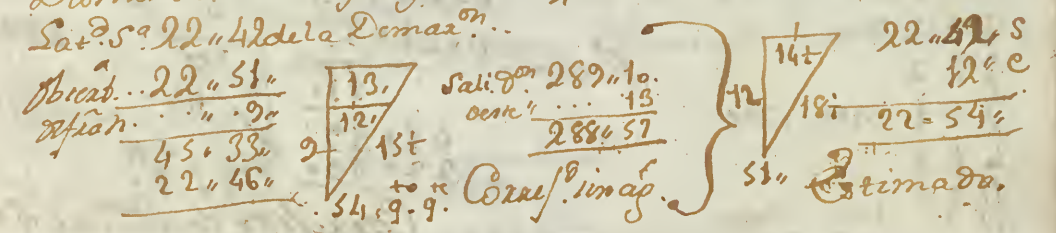 Lat.d S.a 22,,42 dela Demar.on...
Obceb.a... 22,,51,,
. . . ,, 9,,
45,, 33,,
22,, 46,,
13,
12,
9
15t
54. g.to g.te
Sali.on 289,, 10.
oeste ,, ... 13
288,, 57
Corres.g imag.
12
14t
18t
51,,
22,,42, S
12,, C
22 = 54,,
Estimada.